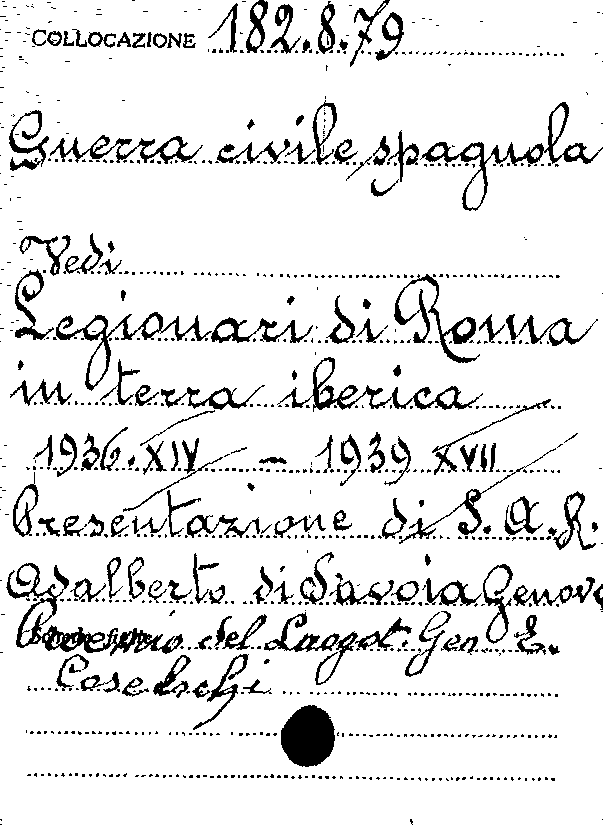 COLLOCAZIONE 182.8.79
Guerra civile spagnola
Vedi
Legionari di Roma
in terra iberica
1936.XIV - 1939 XVII
Presentazione di S. A. R.
Adalberto di Savoia Genova
Proemio del Luogot. Gen E.
Coselschi